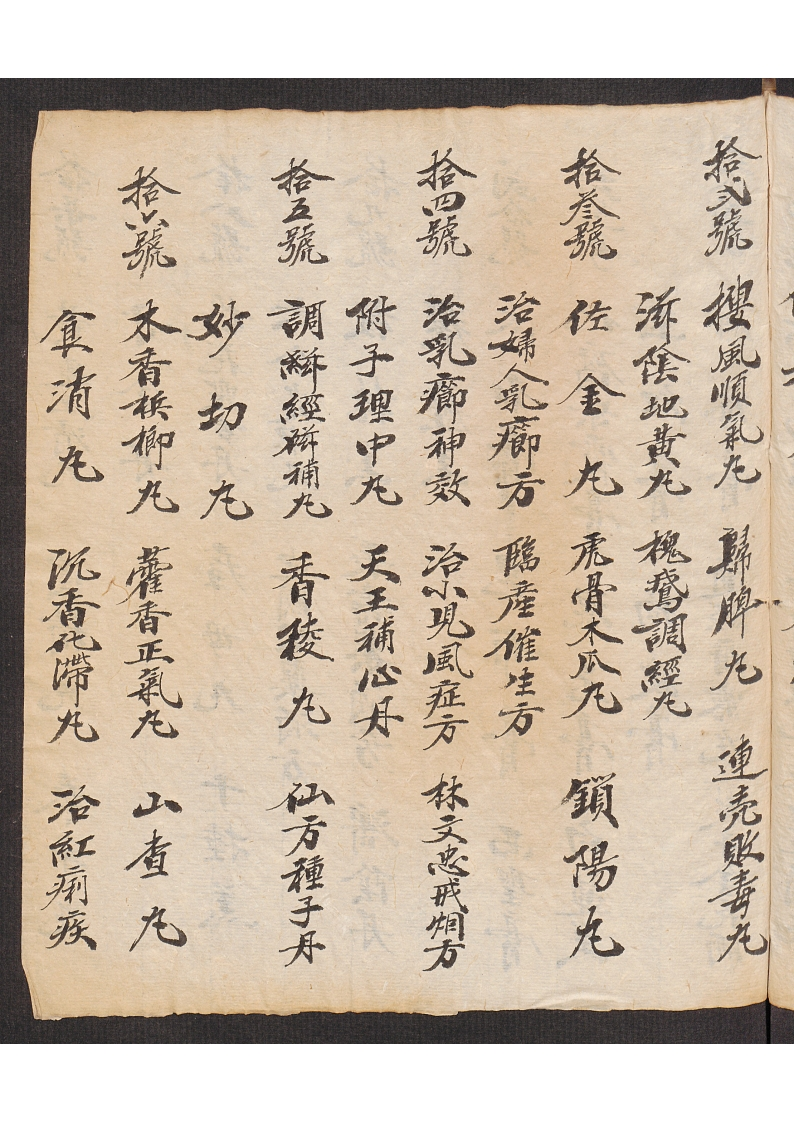 拾弍號 搜風順氣丸 歸脾丸 連壳敗毒丸
滋陰地黃丸 槐鵞調經丸
拾叁號 佐金丸 虎骨木瓜丸 鎖陽丸
治婦人乳癤方 臨產催生方
拾四號 治乳癤神效 治小児風症方 林文忠戒烟方
附子理中丸 天王補心丹
拾五號 調經補丸 香稜丸 仙方種子丹
妙切丸
拾六號 木香梹榔丸 藿香正氣丸 山查丸
食消丸 沉香化滯丸 治紅痢疾